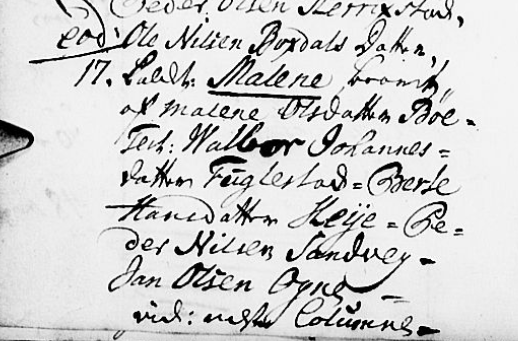 Peder Olsen Herrixstad,
eod: Ole Nilsen Boxdals datter,
17. Kaldt: Malene, baaret
af Malene Olsdatter Bøe =
Test: Walbor Johannes =
datter Fuglestad = Berte
Hansdatter Heije = Pe =
der Nilsen Sandvey =
Jan Olsen Ogne =
vid: næste Columne =